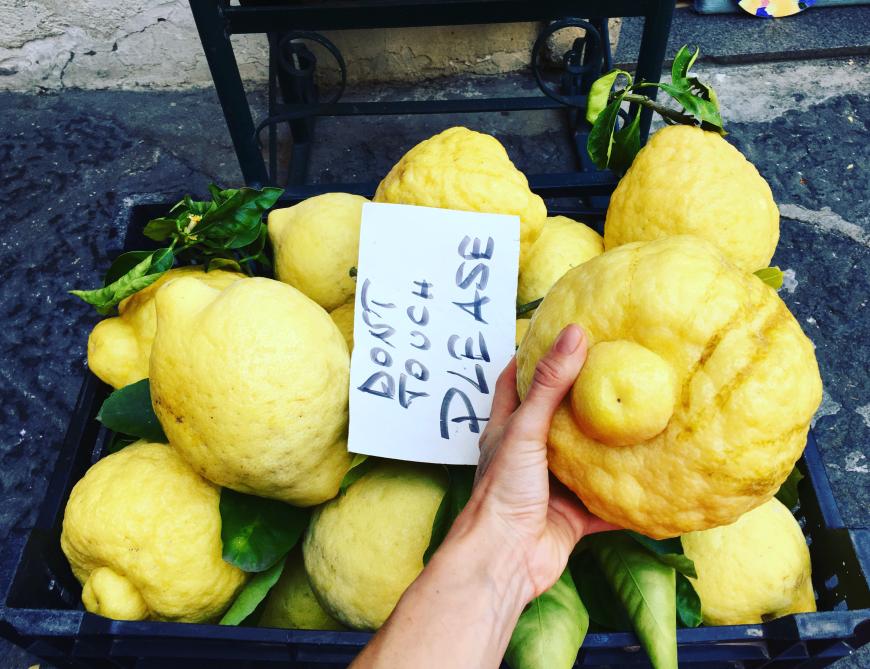 DON'T
TOUCH
PLEASE